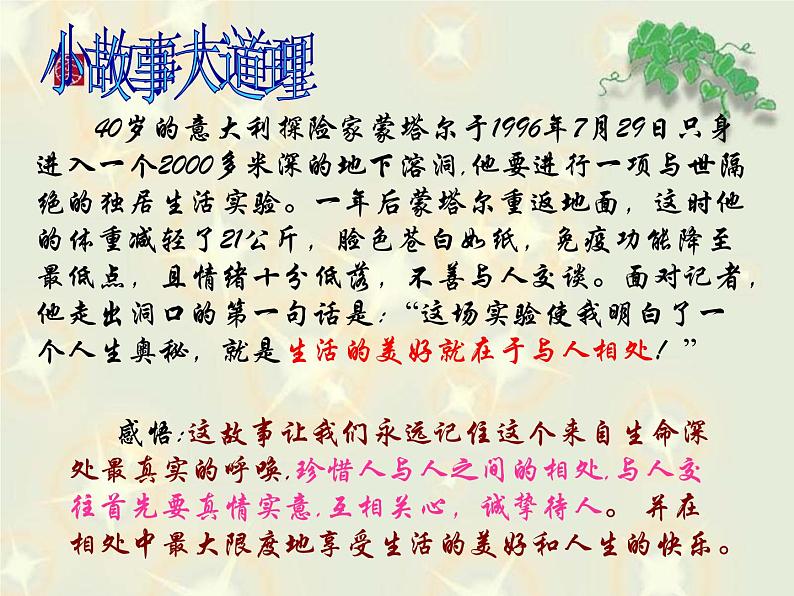 小故事大道理
40岁的意大利探险家蒙塔尔于1996年7月29日只身
进入一个2000多米深的地下溶洞,他要进行一项与世隔
绝的独居生活实验。一年后蒙塔尔重返地面，这时他
的体重减轻了21公斤，脸色苍白如纸，免疫功能降至
最低点，且情绪十分低落，不善与人交谈。面对记者，
他走出洞口的第一句话是:“这场实验使我明白了一
个人生奥秘，就是生活的美好就在于与人相处!”
感悟:这故事让我们永远记住这个来自生命深
处最真实的呼唤,珍惜人与人之间的相处,与人交
往首先要真情实意,互相关心，诚挚待人。并在
相处中最大限度地享受生活的美好和人生的快乐。